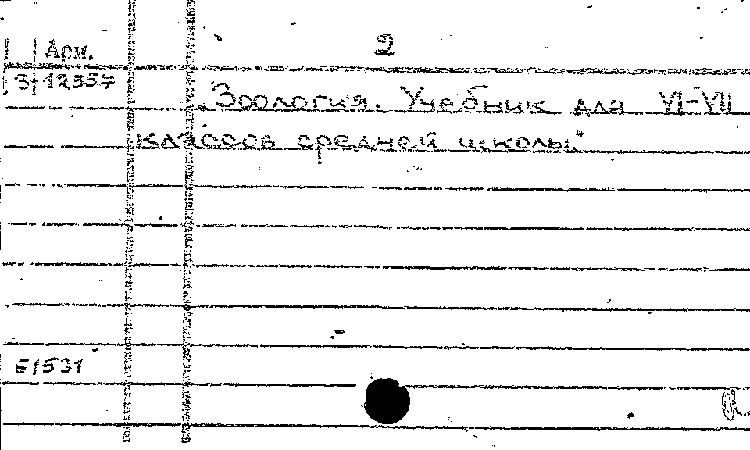 Арм. 2
3/12357
„Зоология. Учебник для VI-VII
классов средней школы."
1531